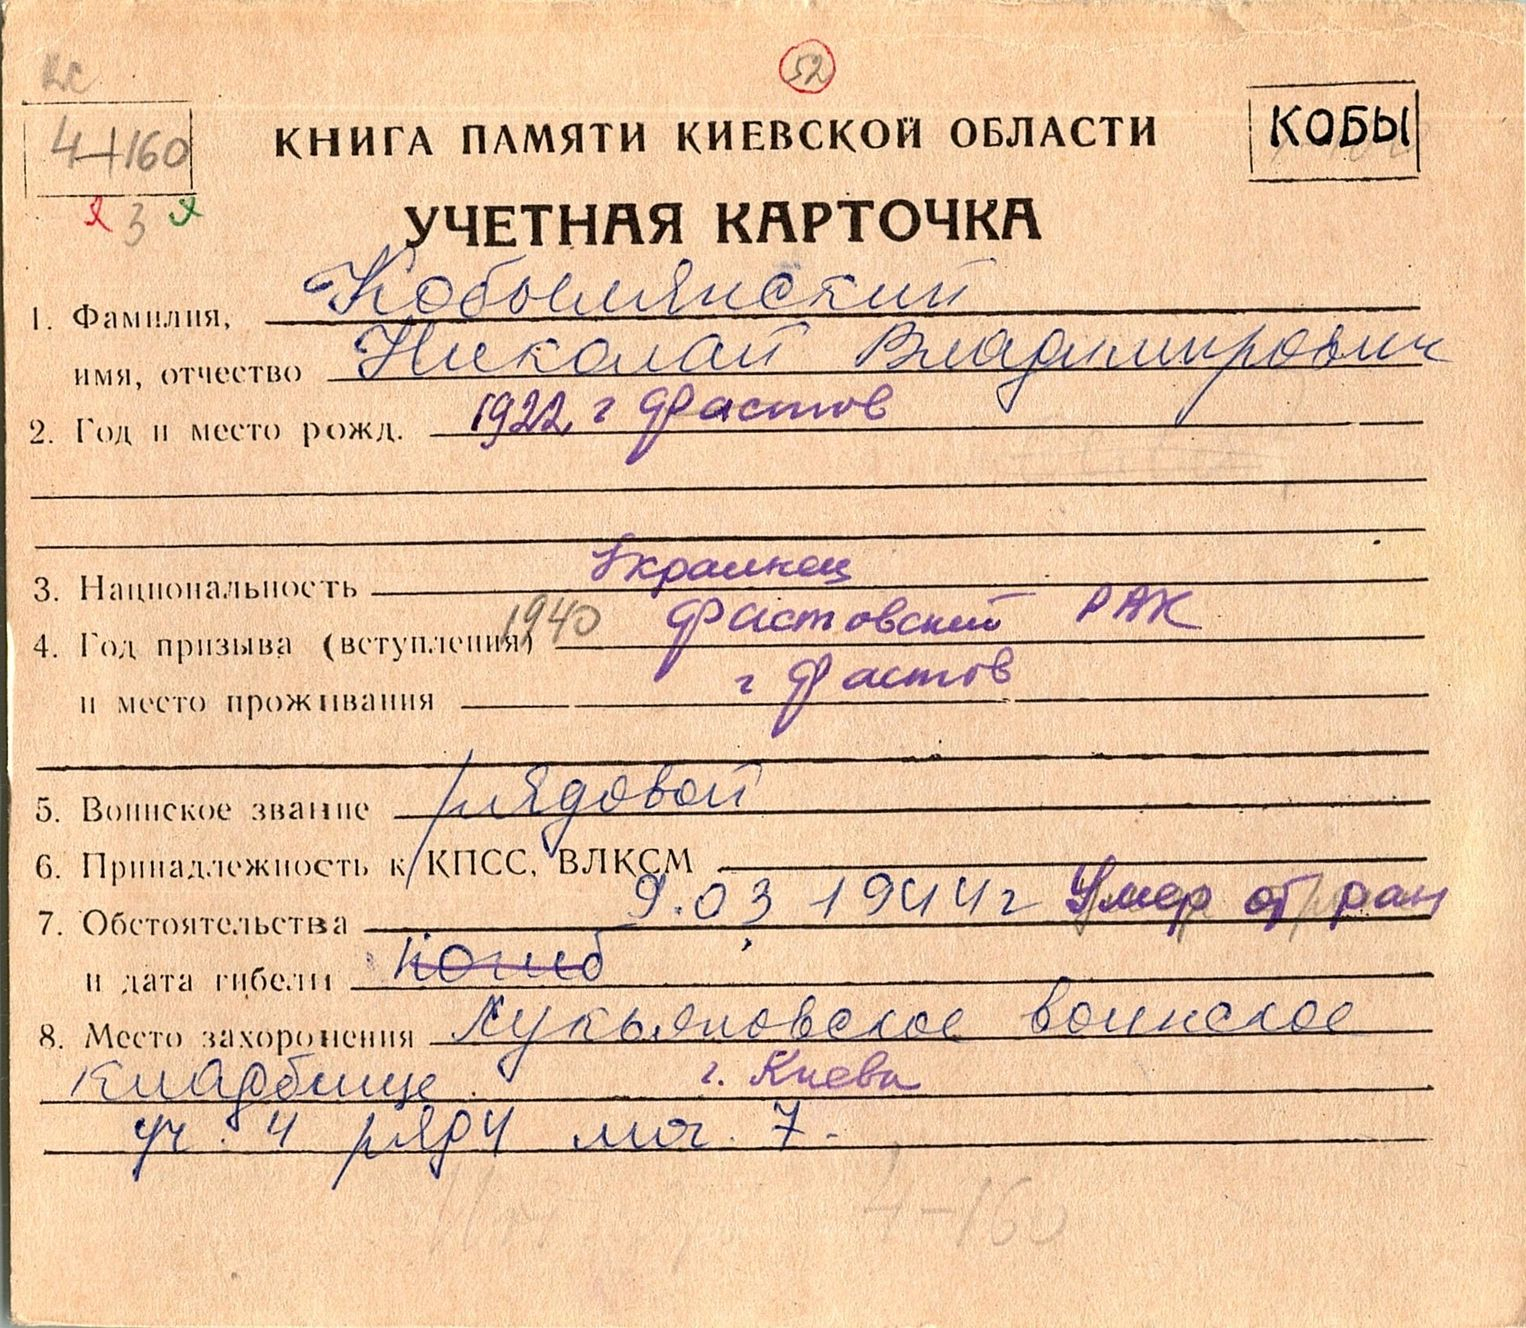 52
КНИГА ПАМЯТИ КИЕВСКОЙ ОБЛАСТИ
КОБЫ
4-160
3
УЧЕТНАЯ КАРТОЧКА
1. Фамилия, Кобылянский
имя, отчество Николай Владимирович
2. Год и место рожд. 1922 г Фастов
3. Национальность Украинец
4. Год призыва (вступления) 1940 Фастовский РАК
и место проживания г Фастов
5. Воинское звание рядовой
6. Принадлежность к КПСС, ВЛКСМ
7. Обстоятельства 9.03 1944 г Умер от ран
и дата гибели погиб
8. Место захоронения Лукьяновское воинское
кладбище г. Киева
уч. 4 ряд 4 мог. 7.
4-160